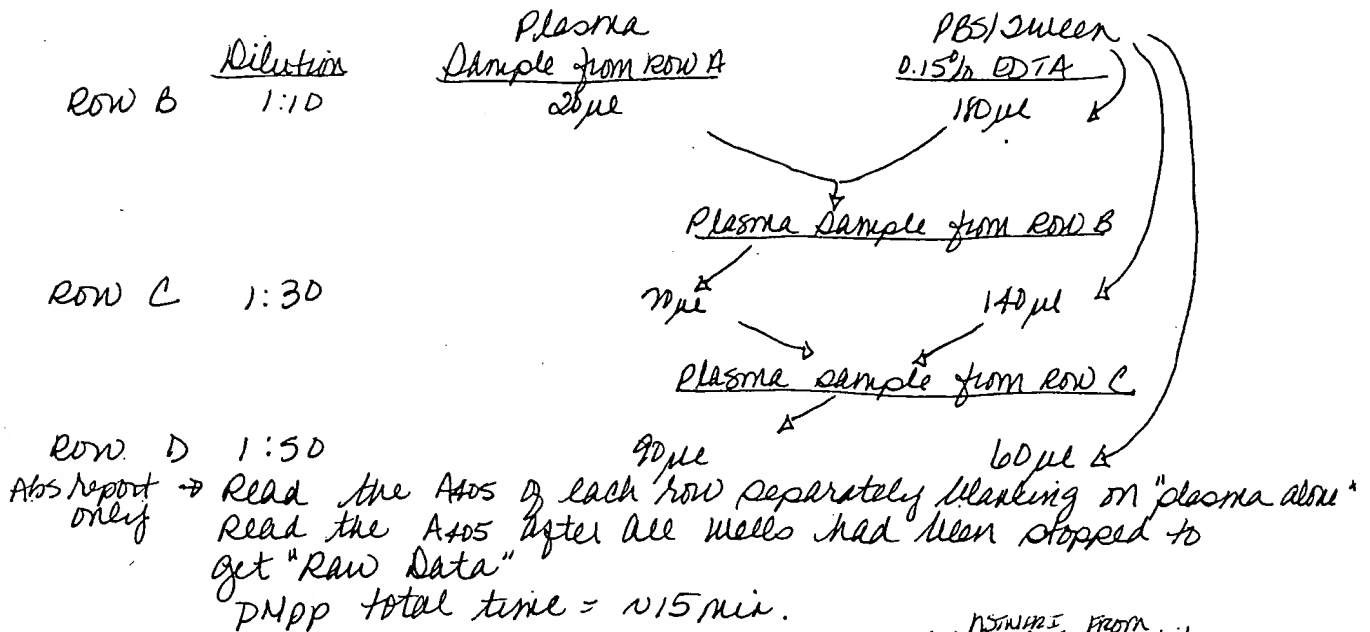 Plasma PBS/Tween
Dilution Sample from Row A 0.15% EDTA
ROW B 1:10 20µl 180µl
Plasma Sample from Row B
ROW C 1:30 70µl 140µl
Plasma sample from Row C
ROW D 1:50 90µl 60µl
Abs report → Read the A405 of each row separately blanking on "plasma alone"
only Read the A405 after all wells had been stopped to
get "Raw Data"
PNPP total time = ~15 min.
FROM